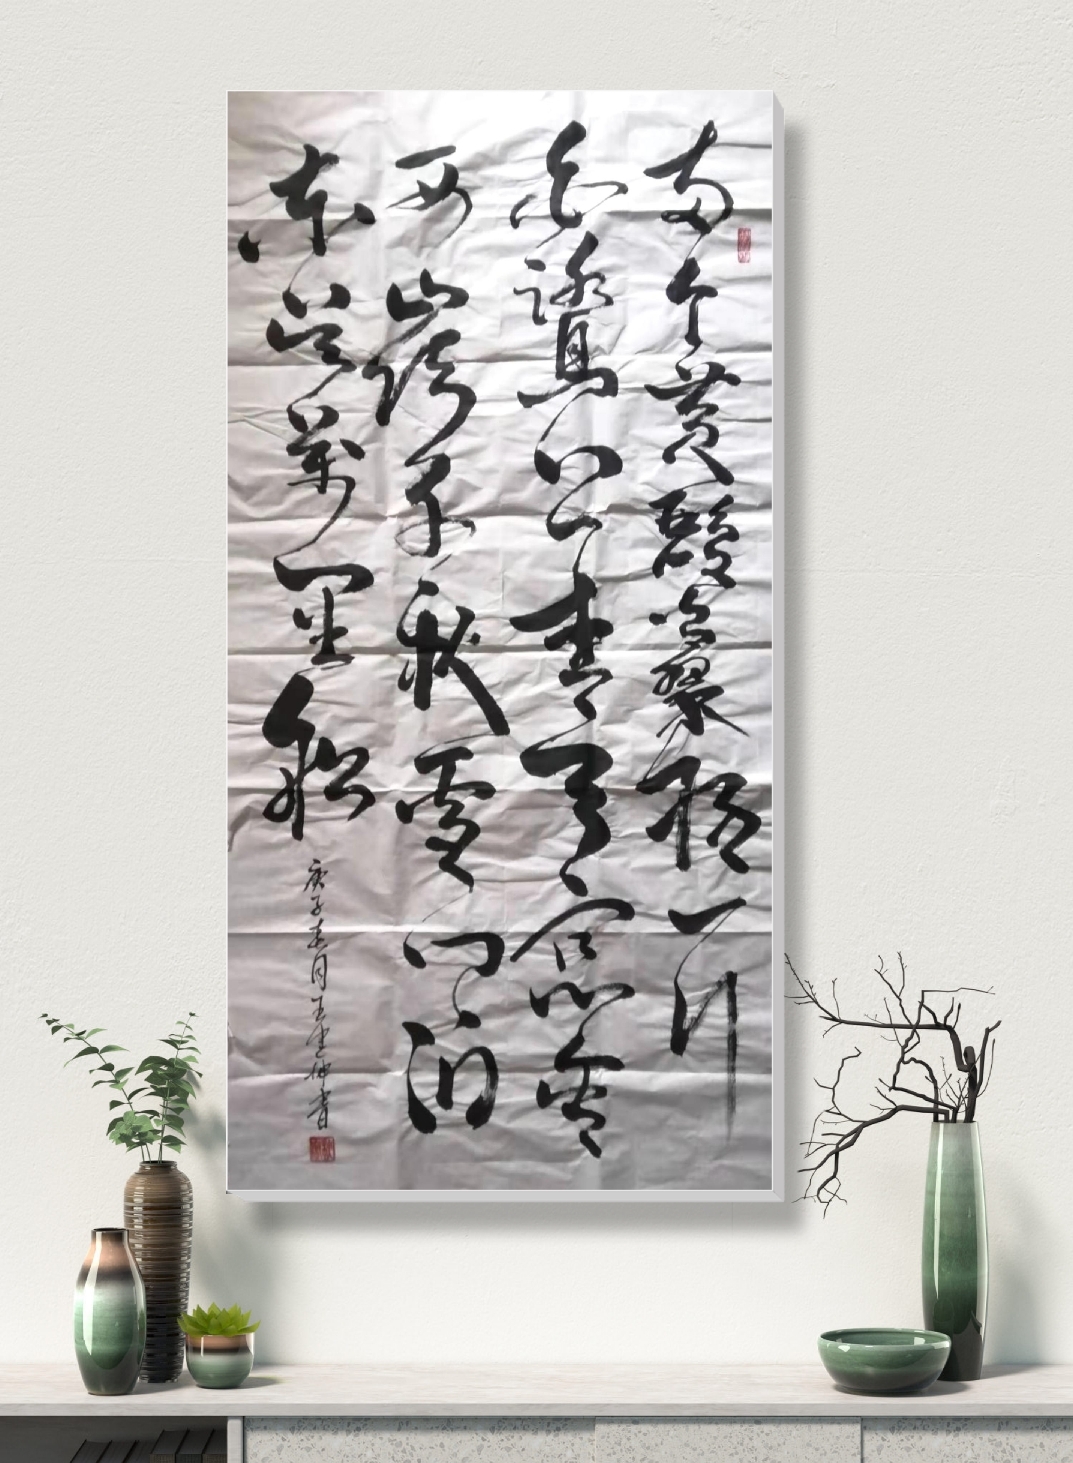 两个黄鹂鸣翠柳一行
白鹭上青天窗含
西岭千秋雪门泊
东吴萬里船
庚子春月王书